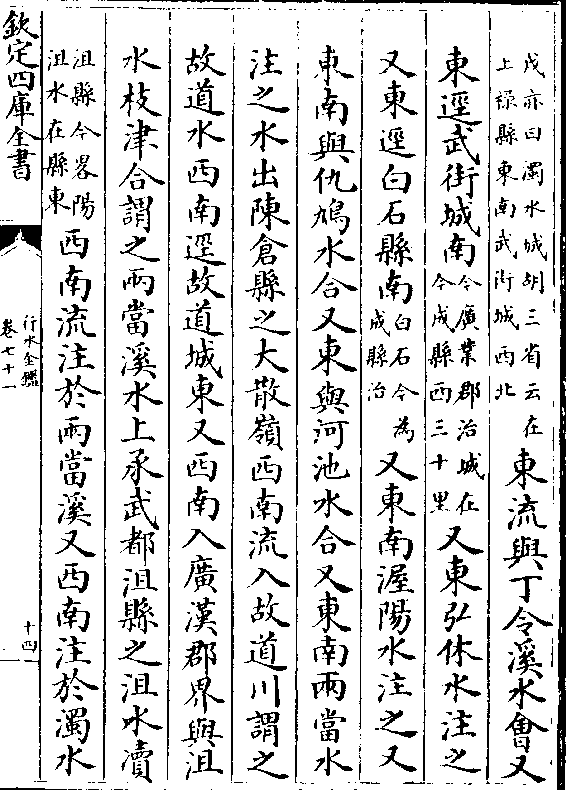 戍亦曰濁水城胡三省云在
上祿縣東南武街城西北
東流與丁令溪水會又
東逕武街城南
今廣業郡治城在
今成縣西三十里
又東弘休水注之
又東逕白石縣南
白石今為
成縣治
又東南渥陽水注之又
東南與仇鳩水合又東與河池水合又東南兩當水
注之水出陳倉縣之大散嶺西南流入故道川謂之
故道水西南逕故道城東又西南入廣漢郡界與沮
水枝津合謂之兩當溪水上承武都沮縣之沮水瀆
沮縣今畧陽
沮水在縣東
西南流注於兩當溪又西南注於濁水
欽定四庫全書
行水金鑑
卷七十一
十四